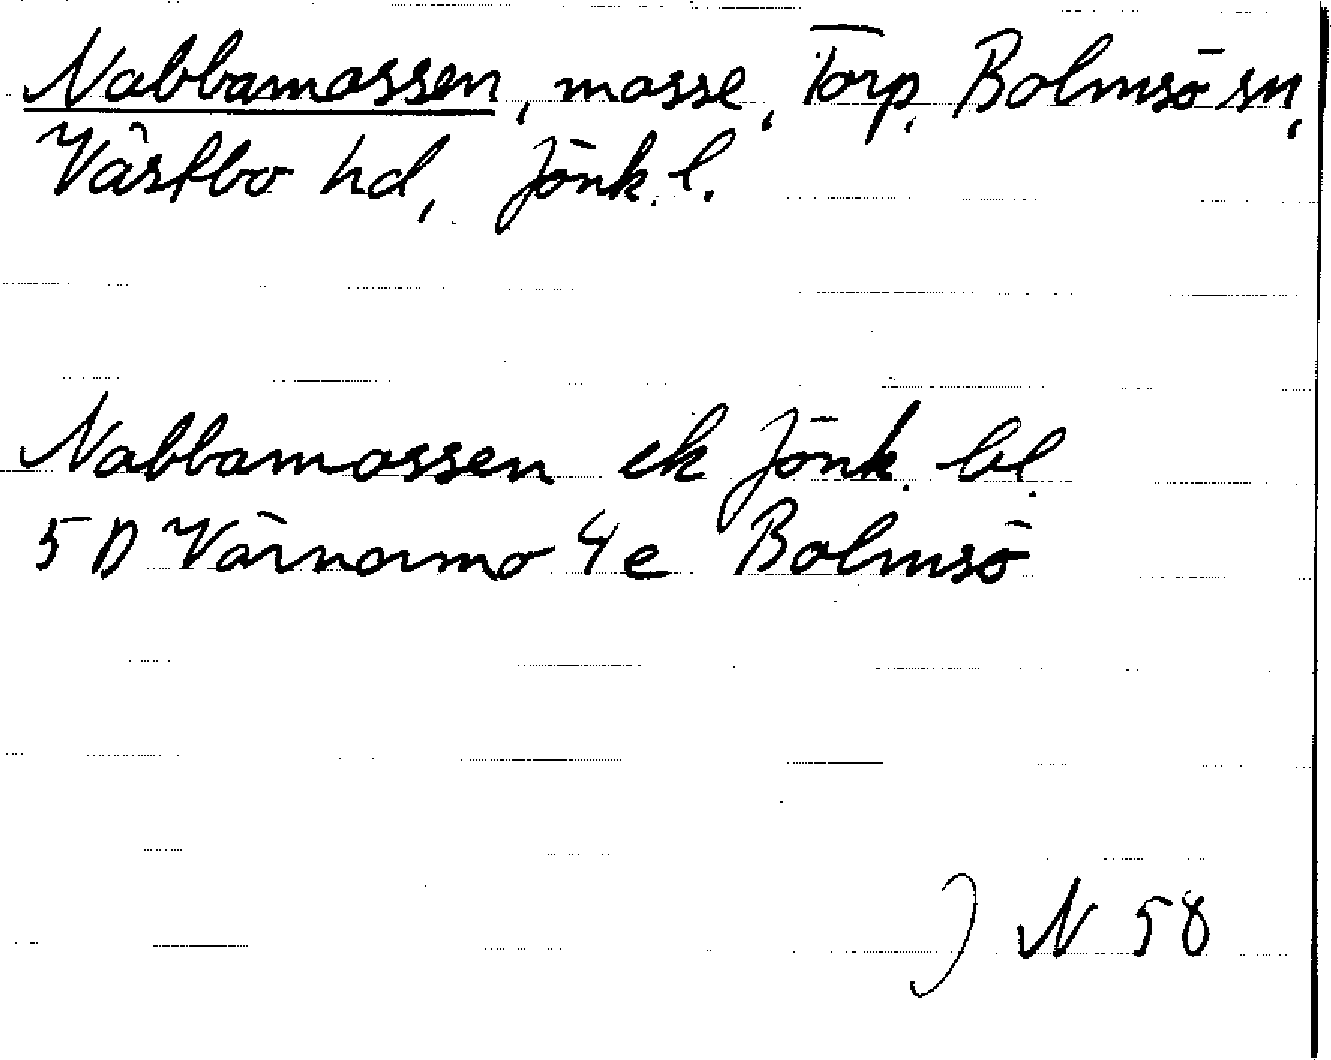 Nabbamossen, mosse, Torp, Bolmsö sn,
Västbo hd, Jönk. l.
Nabbamossen ek Jönk. bl.
5 D Värnamo 4 e Bolmsö
J N 58